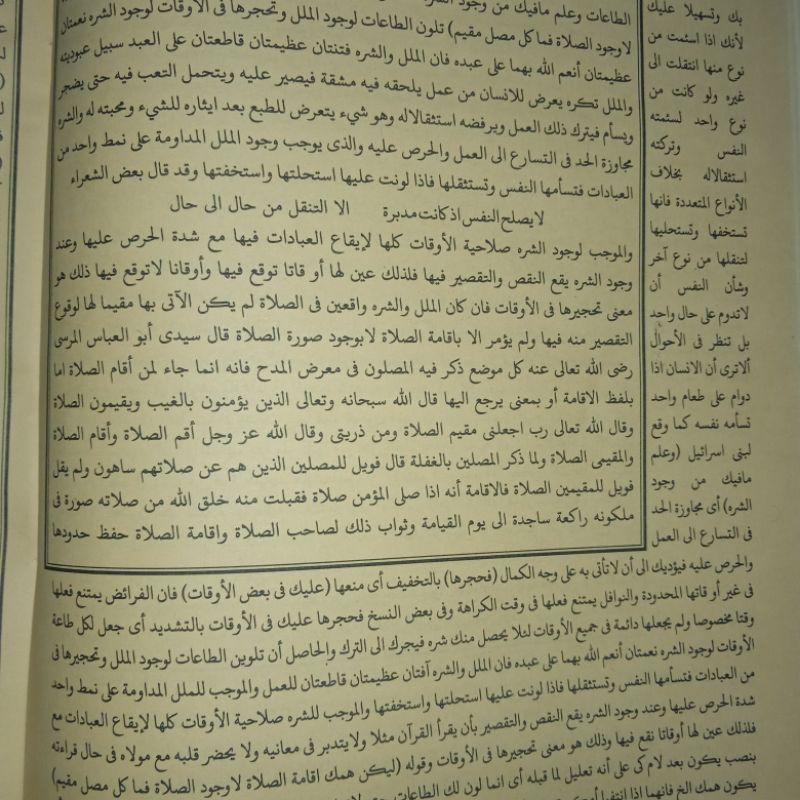 الطاعات وعلم مافيك من وجود الشره
لاوجود الصلاة فما كل مصل مقيم) تلون الطاعات لوجود الملل وتحجرها فى الأوقات لوجود الشره نعمتان
عظيمتان أنعم الله بهما على عبده فان الملل والشره فتنتان عظيمتان قاطعتان على العبد سبيل عبوديته
والملل تكره يعرض للانسان من عمل يلحقه فيه مشقة فيصير عليه ويتحمل التعب فيه حتى يضجر
ويسأم فيترك ذلك العمل ويرفضه استثقالاله وهو شىء يتعرض للطبع بعد ايثاره للشىء ومحبته له والشره
مجاوزة الحد فى التسارع الى العمل والحرص عليه والذى يوجب وجود الملل المداومة على نمط واحد من
العبادات فتسأمها النفس وتستثقلها فاذا لونت عليها استحلتها واستخفتها وقد قال بعض الشعراء
لايصلح النفس اذ كانت مدبرة الا التنقل من حال الى حال
والموجب لوجود الشره صلاحية الأوقات كلها لإيقاع العبادات فيها مع شدة الحرص عليها وعند
وجود الشره يقع النقص والتقصير فيها فلذلك عين لها أو قاتا توقع فيها وأوقانا لاتوقع فيها ذلك هو
معنى تحجيرها فى الأوقات فان كان الملل والشره واقعين فى الصلاة لم يكن الآتى بها مقيما لها لوقوع
التقصير منه فيها ولم يؤمر الا باقامة الصلاة لابوجود صورة الصلاة قال سيدى أبو العباس المرسى
رضى الله تعالى عنه كل موضع ذكر فيه المصلون فى معرض المدح فانه انما جاء لمن أقام الصلاة اما
بلفظ الاقامة أو بمعنى يرجع اليها قال الله سبحانه وتعالى الذين يؤمنون بالغيب ويقيمون الصلاة
وقال الله تعالى رب اجعلنى مقيم الصلاة ومن ذريتى وقال الله عز وجل أقم الصلاة وأقام الصلاة
والمقيمى الصلاة ولما ذكر المصلين بالغفلة قال فويل للمصلين الذين هم عن صلاتهم ساهون ولم يقل
فويل للمقيمين الصلاة فالاقامة أنه اذا صلى المؤمن صلاة فقبلت منه خلق الله من صلاته صورة فى
ملكونه راكعة ساجدة الى يوم القيامة وثواب ذلك لصاحب الصلاة واقامة الصلاة حفظ حدودها
بك وتسهيلا عليك
لأنك اذا اسئمت من
نوع منها انتقلت الى
غيره ولو كانت من
نوع واحد لسئمته
النفس وتركته
استثقالاله بخلاف
الأنواع المتعددة فانها
تستخفها وتستحليها
لتنقلها من نوع آخر
وشأن النفس أن
لاتدوم على حال واحد
بل تنظر فى الأحوال
ألاترى أن الانسان اذا
دوام على طعام واحد
تسأمه نفسه كما وقع
لبنى اسرائيل (وعلم
مافيك من وجود
الشره) أى مجاوزة الحد
فى التسارع الى العمل
والحرص عليه فيؤديك الى أن لاتأتى به على وجه الكمال (فحجرها) بالتخفيف أى منعها (عليك فى بعض الأوقات) فان الفرائض يمتنع فعلها
فى غير أو قاتها المحدودة والنوافل يمتنع فعلها فى وقت الكراهة وفى بعض النسخ فحجرها عليك فى الأوقات بالتشديد أى جعل لكل طاعة
وقتا مخصوصا ولم يجعلها دائمة فى جميع الأوقات لئلا يحصل منك شره فيجرك الى الترك والحاصل أن تلوين الطاعات لوجود الملل وتحجيرها فى
الأوقات لوجود الشره نعمتان أنعم الله بهما على عبده فان الملل والشره آفتان عظيمتان قاطعتان للعمل والموجب للملل المداومة على نمط واحد
من العبادات فتسأمها النفس وتستثقلها فاذا لونت عليها استحلتها واستخفتها والموجب للشره صلاحية الأوقات كلها لإيقاع العبادات مع
شدة الحرص عليها وعند وجود الشره يقع النقص والتقصير بأن يقرأ القرآن مثلا ولا يتدبر فى معانيه ولا يحضر قلبه مع مولاه فى حال قراءته
فلذلك عين لها أوقاتا نقع فيها وذلك هو معنى تحجيرها فى الأوقات وقوله (ليكن همك اقامة الصلاة لاوجود الصلاة فما كل مصل مقيم)
بنصب يكون بعد لام كى على أنه تعليل لما قبله أى انما لون لك الطاعات
يكون همك الخ فانهما اذا انتفيا